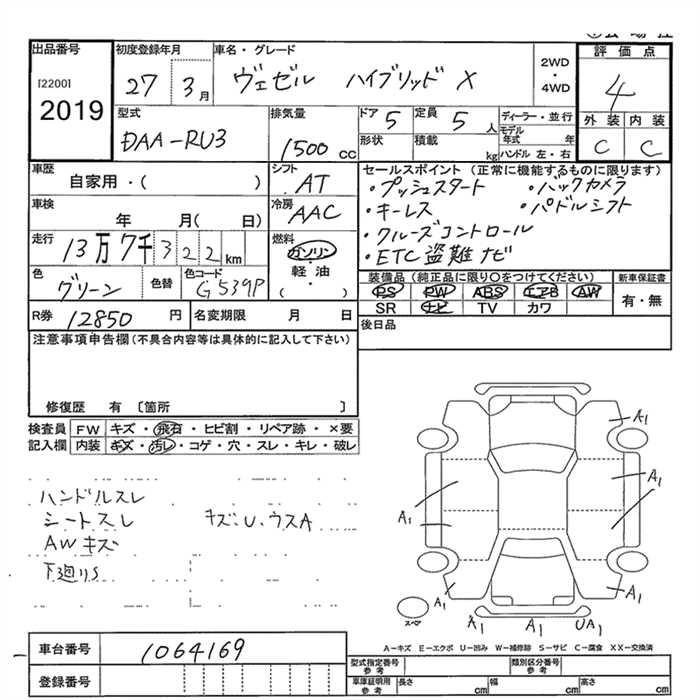 出品番号
[2200]
2019
初度登録年月
27 3月
車名・グレード
ヴェゼル ハイブリッド X
2WD
・
4WD
評価点
4
外装 内装
C C
型式
DAA-RU3
排気量
1500 cc
ドア 5
形状
定員 5 人
積載 kg
ディーラー・並行
モデル年式 年
ハンドル 左・右
車歴
自家用・( )
シフト
AT
車検
年 月( 日)
冷房
AAC
走行
13万7千322km
燃料
ガソリン
・
軽油
・
( )
色
グリーン
色替
色コード
G539P
R券 12850 円
名変期限 月 日
セールスポイント(正常に機能するものに限ります)
・プッシュスタート ・バックカメラ
・キーレス ・パドルシフト
・クルーズコントロール
・ETC 盗難 ナビ
装備品(純正品に限り○をつけてください)
PS PW ABS エアB AW
SR ナビ TV カワ
新車保証書
有・無
後日品
注意事項申告欄(不具合内容等は具体的に記入して下さい)
修復歴 有 [箇所 ]
検査員記入欄
FW キズ・飛石・ヒビ割・リペア跡・×要
内装 キズ・汚レ・コゲ・穴・スレ・キレ・破レ
ハンドルスレ
シートスレ
キズ・U、ウスA
AWキズ
下廻りS
A1
A1
A1
A1
A1
スペア
A1
A1
UA1
A-キズ E-エクボ U-凹み W-補修跡 S-サビ C-腐食 XX-交換済
車台番号 1064169
登録番号
型式指定番号
参考
類別区分番号
参考
車庫証明用
参考
長さ cm
幅 cm
高さ cm